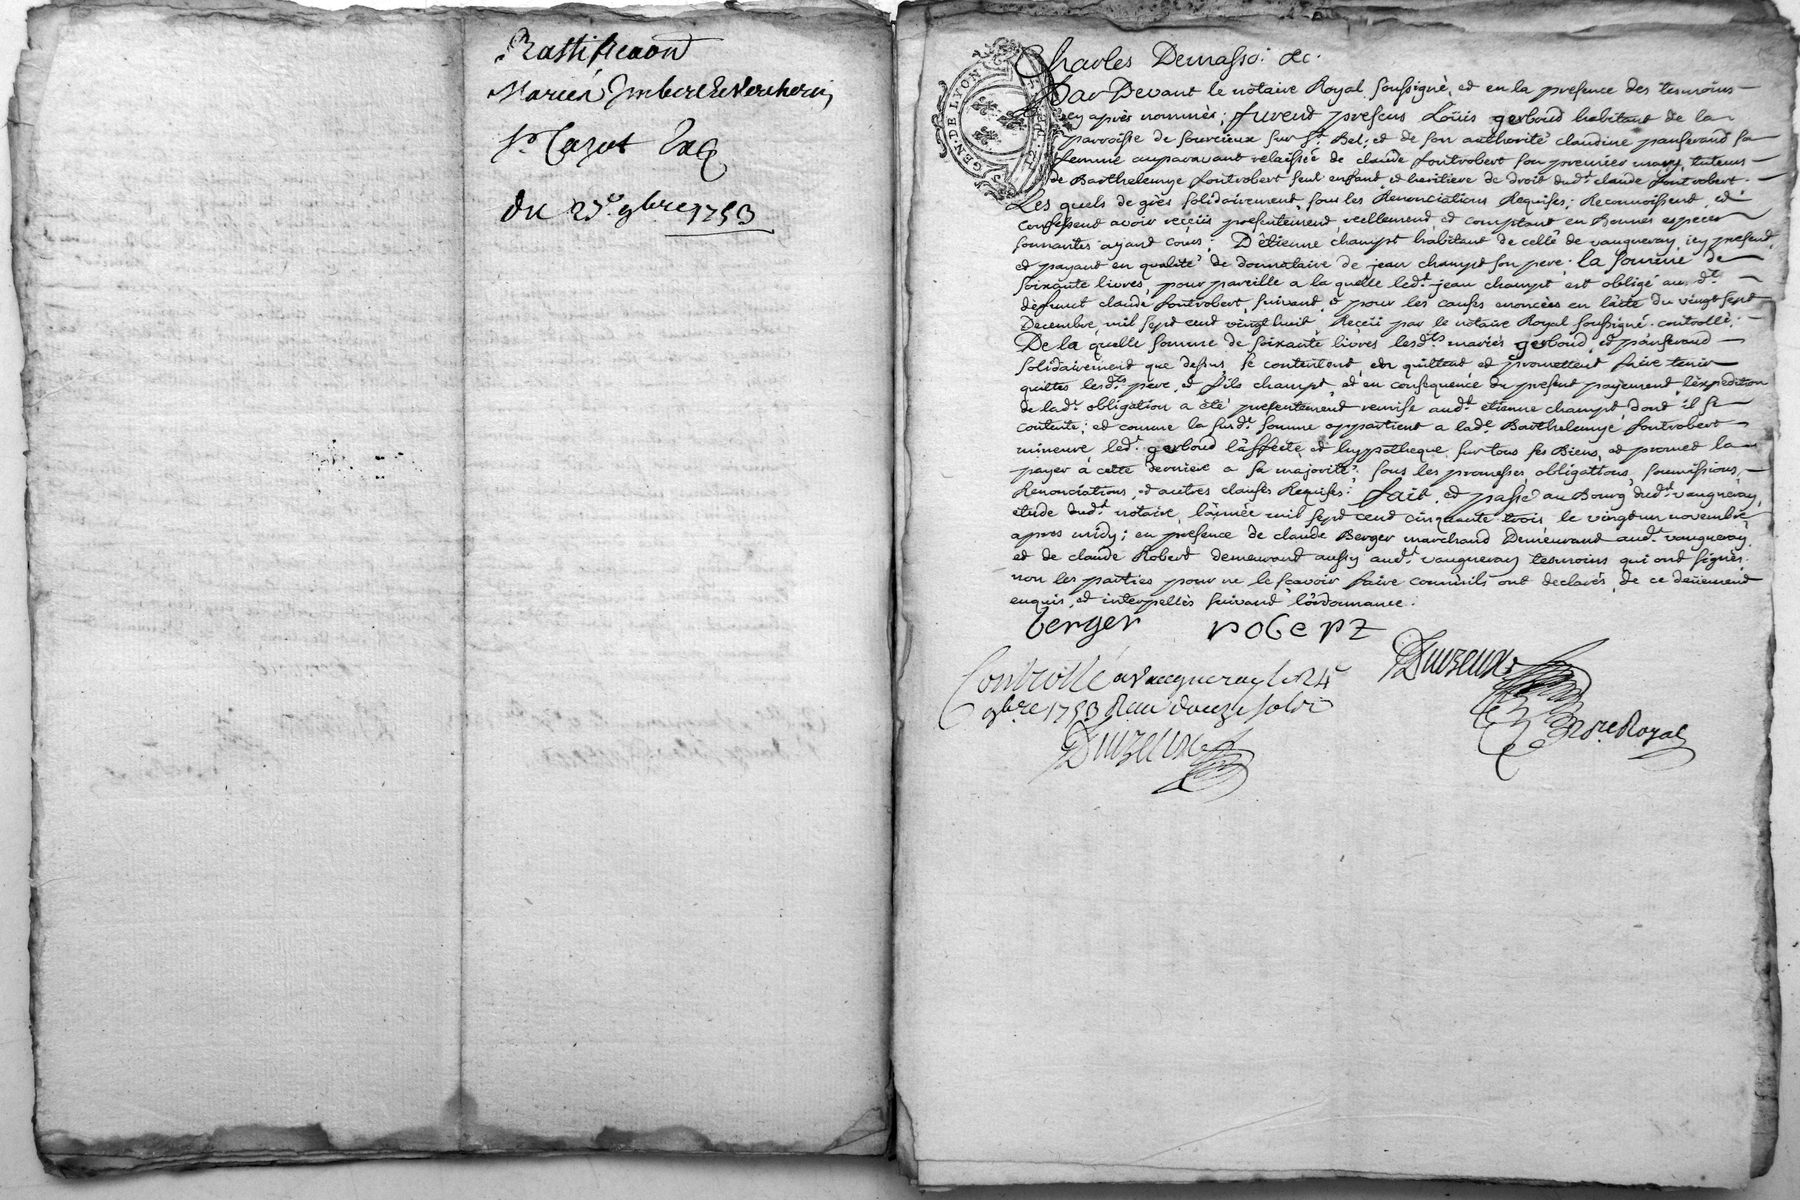 Rattificaon
Mariés Imbert & Vercherin
Sr Cazot
du 23e. 9bre 1753
GEN. DE LYON
Charles Demasso. &c.
Par Devant le notaire Royal soussigné, et en la presence des tesmoins
cy après nommés; furent presens Loüis gerboud habitant de la
parroisse de sourcieux sur st. Bel; et de son authorité claudine panserand sa
femme auparavant relaissée de claude fontrobert son premier mary, tuteurs
de Barthelemye fontrobert seul enfant, et heritiere de droit dudt. claude fontrobert.
Les quels de grés solidairement, sous les Renonciations Requises; Reconnoissent, et
confessent avoir reçeüs presentement, reellement, et comptant en Bonnes especes
sonnantes ayant cours; D'êtienne champt habitant de celle de vaugneray, icy present,
et payant en qualité de donnataire de jean champt son pere; la somme de
soixante livres, pour pareille a la quelle ledt. jean champt est obligé aud. dt.
deffunt claude fontrobert, suivant, et pour les causes enoncées en l'acte du vingt sept
Decembre, mil sept cent vingt huit, Reçeü par le notaire Royal soussigné, controllé;
De la quelle somme de soixante livres lesdts. mariés gerboud, et panserand
solidairement que dessus, se contentent, en quittent et promettent faire tenir
quittes lesdts. pere, et fils champt, et en conséquence du present payement, l'expedition
de ladt. obligation a été presentement remise audt. etienne champt, dont il se
contente; et comme la susdt. somme appartient a lade. Barthelemye fontrobert
mineure, ledt. gerboud l'affecte, et hyppotheque, sur tous ses Biens, et promet la
payer à cette derniere a sa majorité; sous les promesses, obligations, soumissions,
Renonciations, et autres clauses Requises. fait, et passé au Bourg dudt. vaugneray,
etude dudt. notaire, l'année mil sept cent cinquante trois, le vingt un novembre,
apres midy; en presence de claude Berger marchand Demeurant audt. vaugneray,
et de claude Robert demeurant aussy audt. vaugneray tesmoins qui ont signés.
non les parties pour ne le sçavoir faire comm'ils ont declarés, de ce deüement
enquis, et interpellés suivant l'ordonnance.
berger robert
Duzeux
Controllé a Vaugneray le 24
9bre 1753 Reçu douze sols
Nore Royal
Duzeux